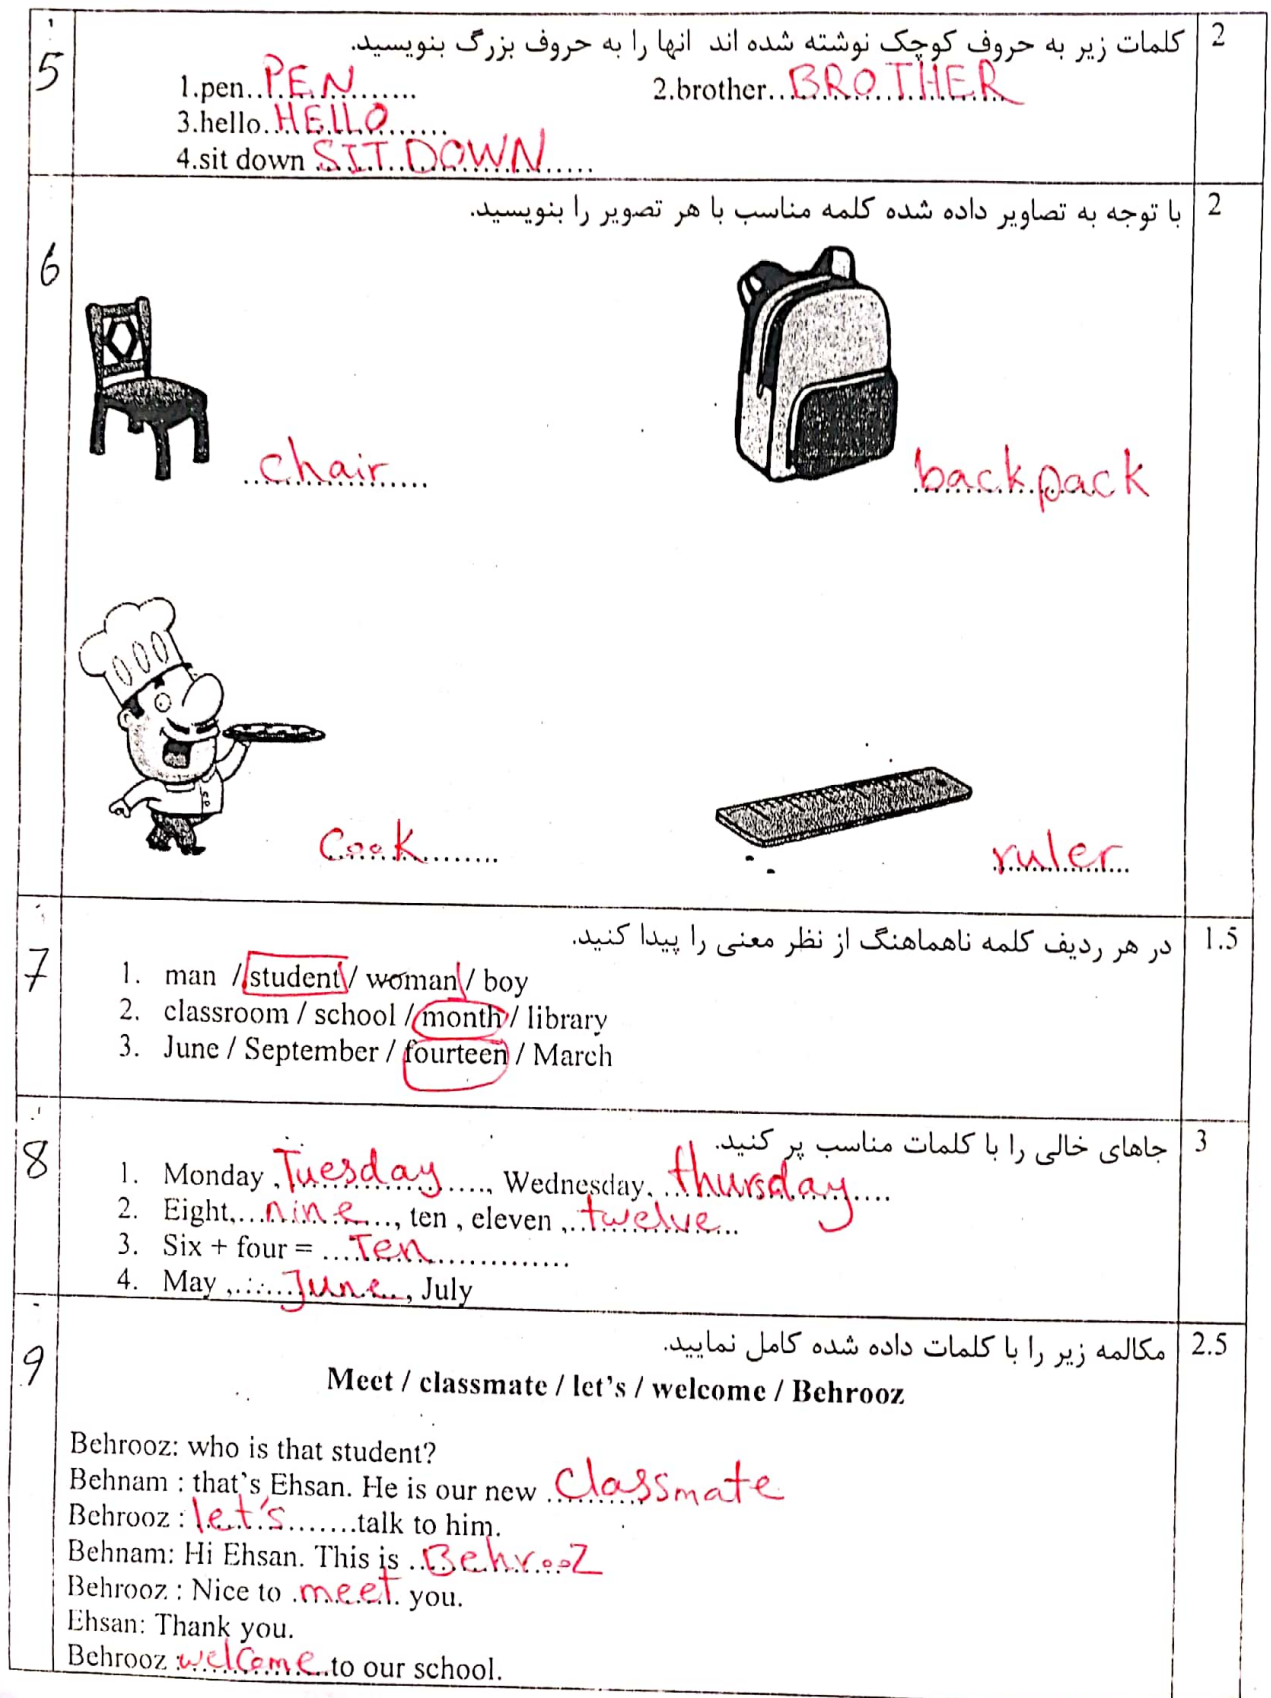 5 کلمات زیر به حروف کوچک نوشته شده اند انها را به حروف بزرگ بنویسید. 2
1.pen..PEN........... 2.brother...BROTHER
3.hello..HELLO..........
4.sit down SIT DOWN......
6 با توجه به تصاویر داده شده کلمه مناسب با هر تصویر را بنویسید. 2
chair..... backpack
cook.......... ruler..
7 در هر ردیف کلمه ناهماهنگ از نظر معنی را پیدا کنید. 1.5
1. man / student / woman / boy
2. classroom / school / month / library
3. June / September / fourteen / March
8 جاهای خالی را با کلمات مناسب پر کنید. 3
1. Monday ,Tuesday....., Wednesday, ...thursday....
2. Eight,....nine...., ten , eleven ,..twelve...
3. Six + four = ....Ten...............
4. May ,......June..., July
9 مکالمه زیر را با کلمات داده شده کامل نمایید. 2.5
Meet / classmate / let's / welcome / Behrooz
Behrooz: who is that student?
Behnam : that's Ehsan. He is our new classmate
Behrooz : let's.......talk to him.
Behnam: Hi Ehsan. This is ..Behrooz
Behrooz : Nice to .meet. you.
Ehsan: Thank you.
Behrooz :welcome..to our school.